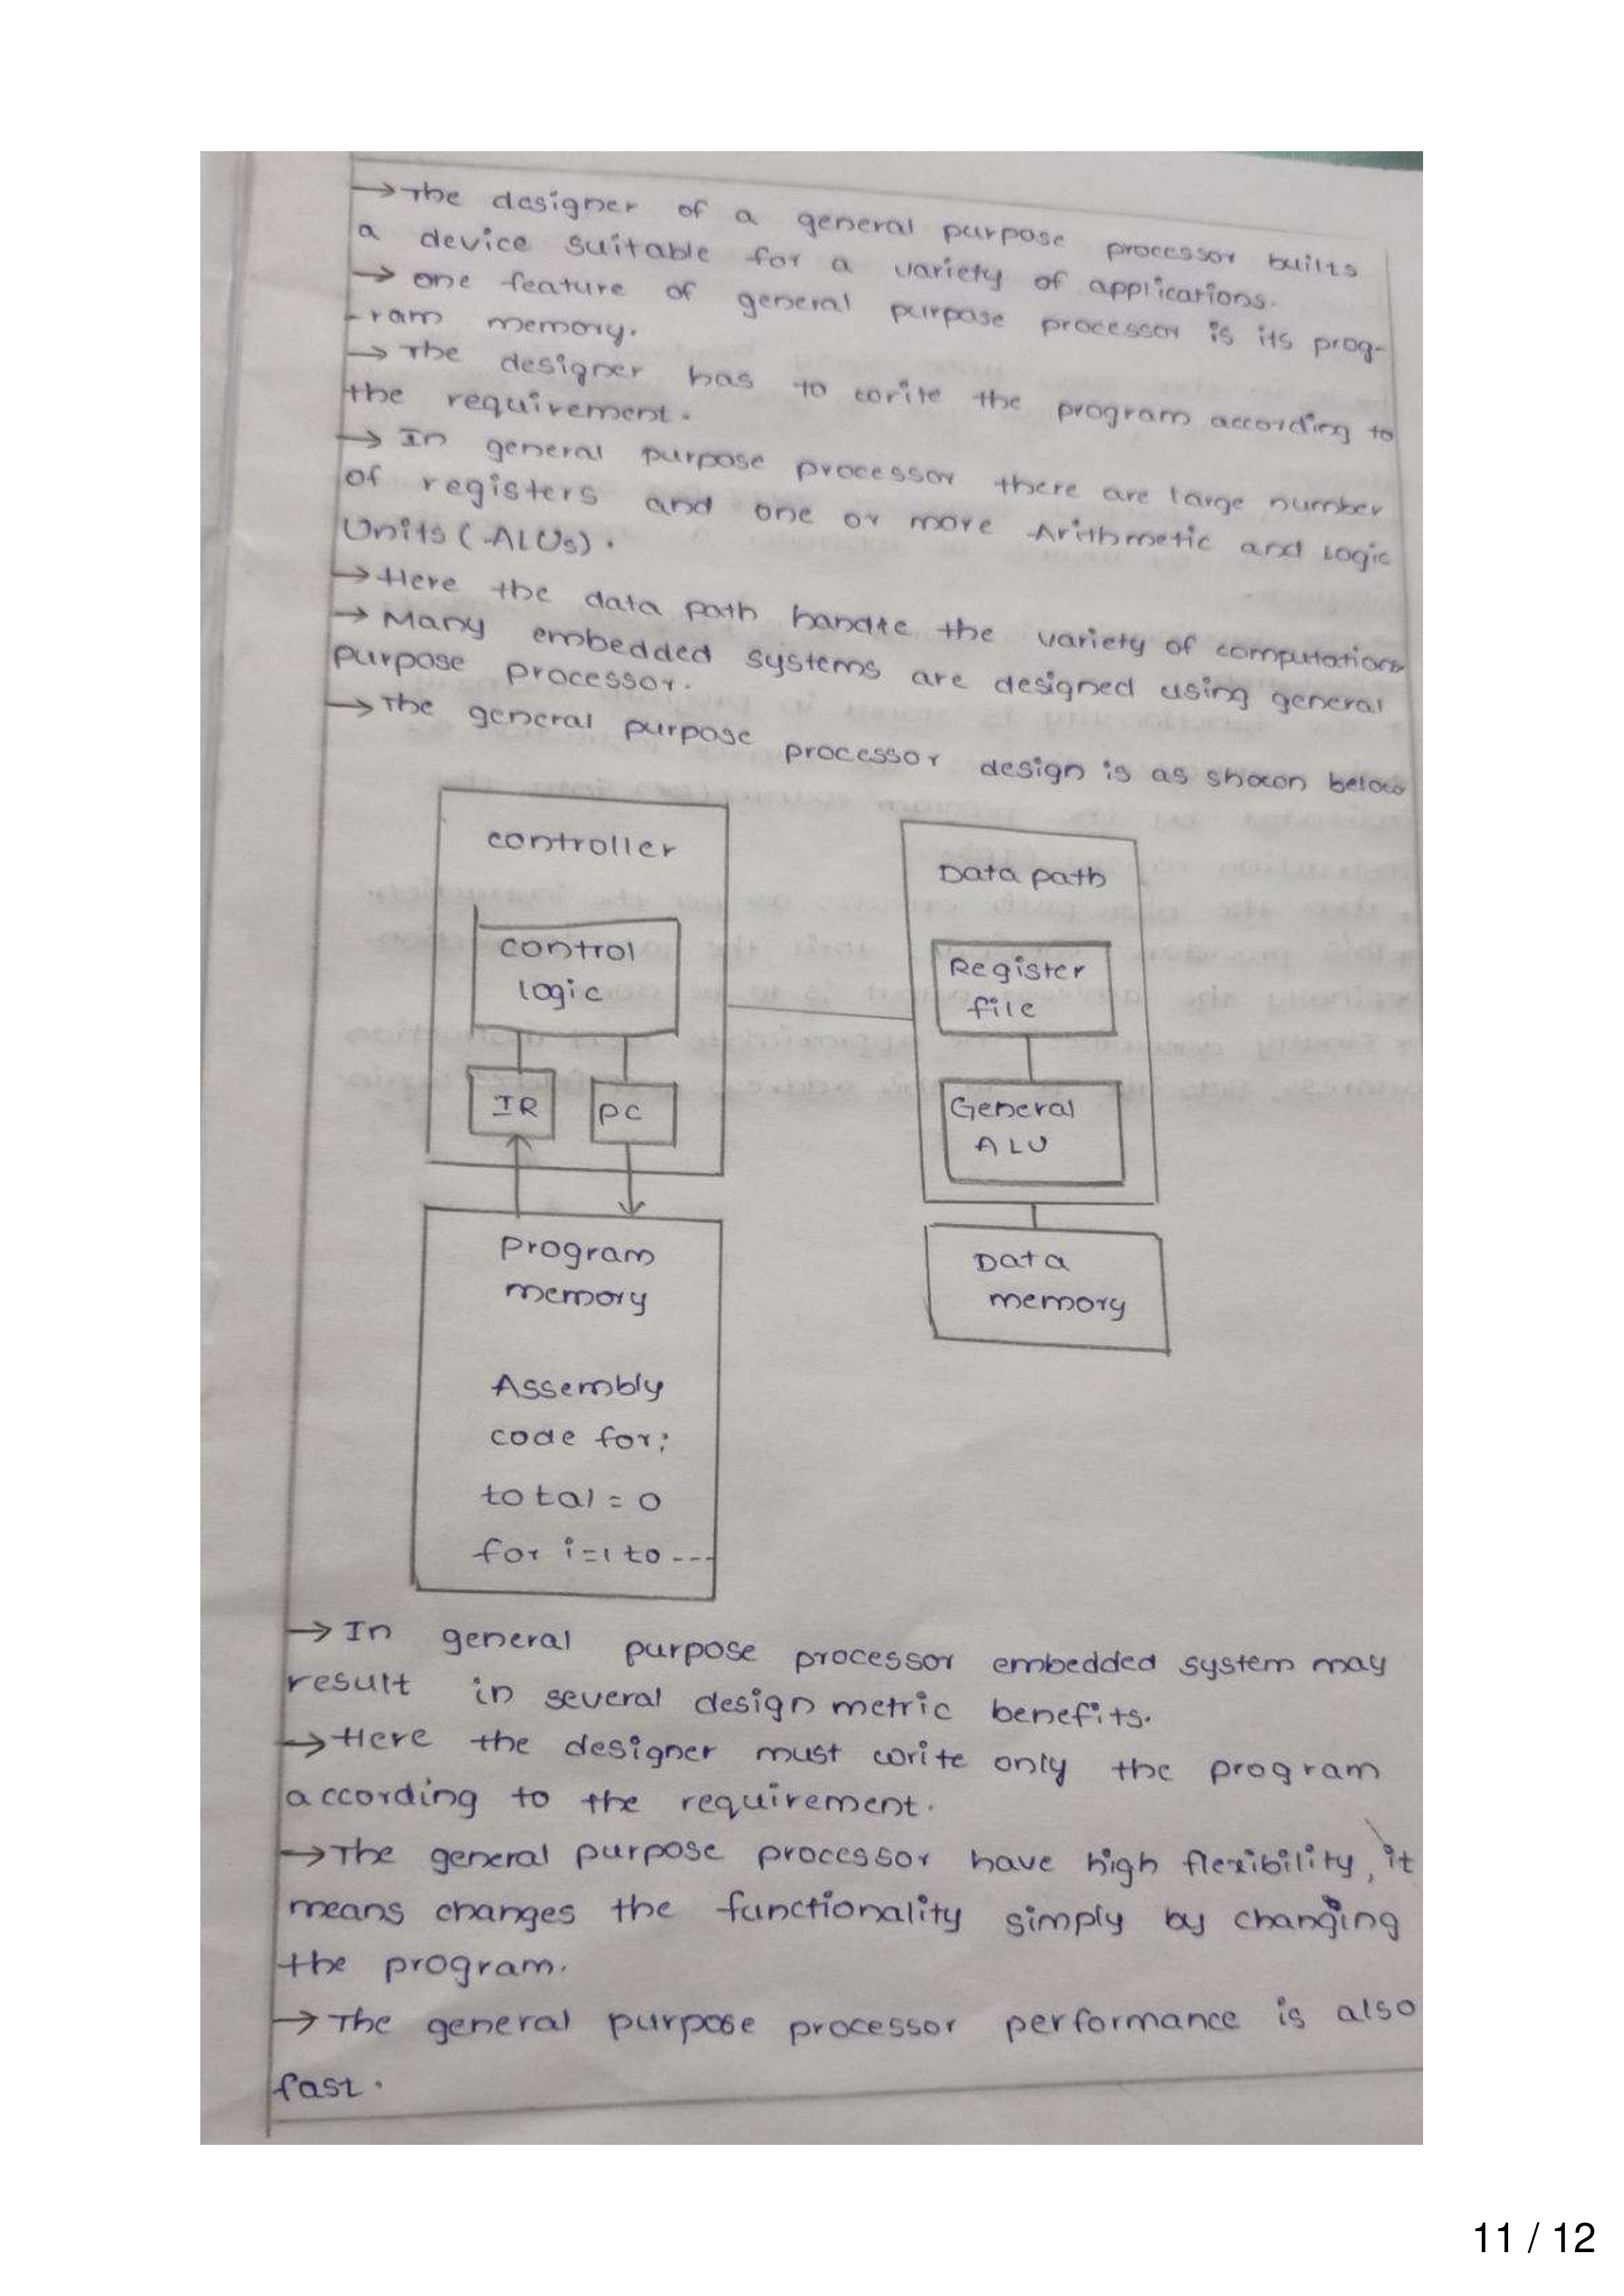 →The designer of a general purpose processor builts
a device suitable for a variety of applications.
→ one feature of general purpose processor is its prog-
-ram memory.
→ The designer has to write the program according to
the requirement.
→ In general purpose processor there are large number
of registers and one or more Arithmetic and Logic
Units (ALUs).
→Here the data path handle the variety of computations
→ Many embedded systems are designed using general
purpose processor.
→The general purpose processor design is as shown below
controller
control
logic
IR
PC
Data path
Register
file
General
ALU
Program
memory
Assembly
code for:
total = 0
for i=1 to ---
Data
memory
→ In general purpose processor embedded system may
result in several design metric benefits.
→Here the designer must write only the program
according to the requirement.
→The general purpose processor have high flexibility, it
means changes the functionality simply by changing
the program.
→ The general purpose processor performance is also
fast.
11 / 12